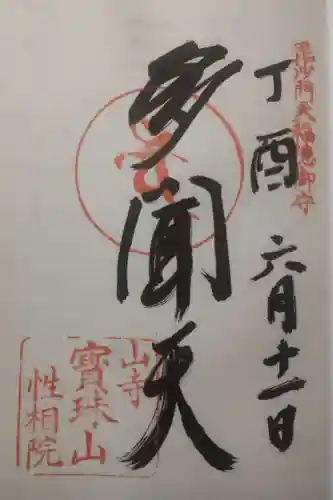 毘沙門天福徳御守
丁酉 六月十一日
多聞天
山寺
寳珠山
性相院